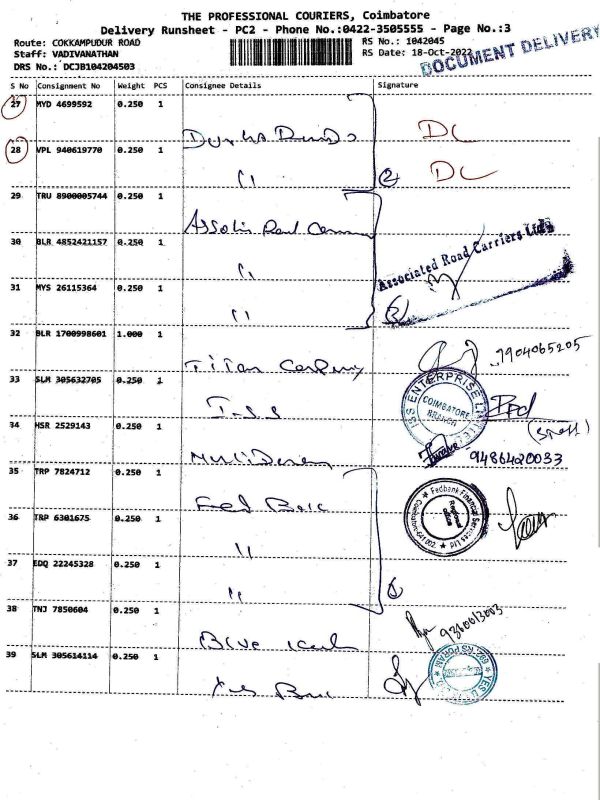 THE PROFESSIONAL COURIERS, Coimbatore
Delivery Runsheet - PC2 - Phone No.:0422-3505555 - Page No.:3
Route: COKKAMPUDUR ROAD
RS No.: 1042045
Staff: VADIVANATHAN
RS Date: 18-Oct-2022
DOCUMENT DELIVERY
DRS No.: DCJB104204503
S No Consignment No Weight PCS Consignee Details Signature
27 MYD 4699592 0.250 1
DC
28 VPL 940619770 0.250 1
"
DC
2
29 TRU 8900005744 0.250 1
30 BLR 4852421157 0.250 1
"
Associated Road Carriers Ltd
31 MYS 26115364 0.250 1
"
3
32 BLR 1700998601 1.000 1
Titan
7904065205
33 SLM 305632705 0.250 1
ISS ENTERPRISE
COIMBATORE
BRANCH
34 HSR 2529143 0.250 1
9486420033
35 TRP 7824712 0.250 1
Fed
Fedbank Financial Services Ltd
Coimbatore-641 002
36 TRP 6301675 0.250 1
"
37 EDQ 22245328 0.250 1
"
38 TNJ 7850604 0.250 1
Blue
9360013003
39 SLM 305614114 0.250 1